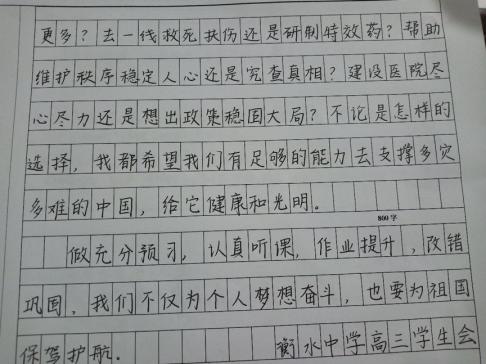 更多？去一线救死扶伤还是研制特效药？帮助
维护秩序稳定人心还是究查真相？建设医院尽
心尽力还是想出政策稳固大局？不论是怎样的
选择，我都希望我们有足够的能力去支撑多灾
多难的中国，给它健康和光明。
800字
做充分预习，认真听课，作业提升，改错
巩固，我们不仅为个人梦想奋斗，也要为祖国
保驾护航．衡水中学高三学生会